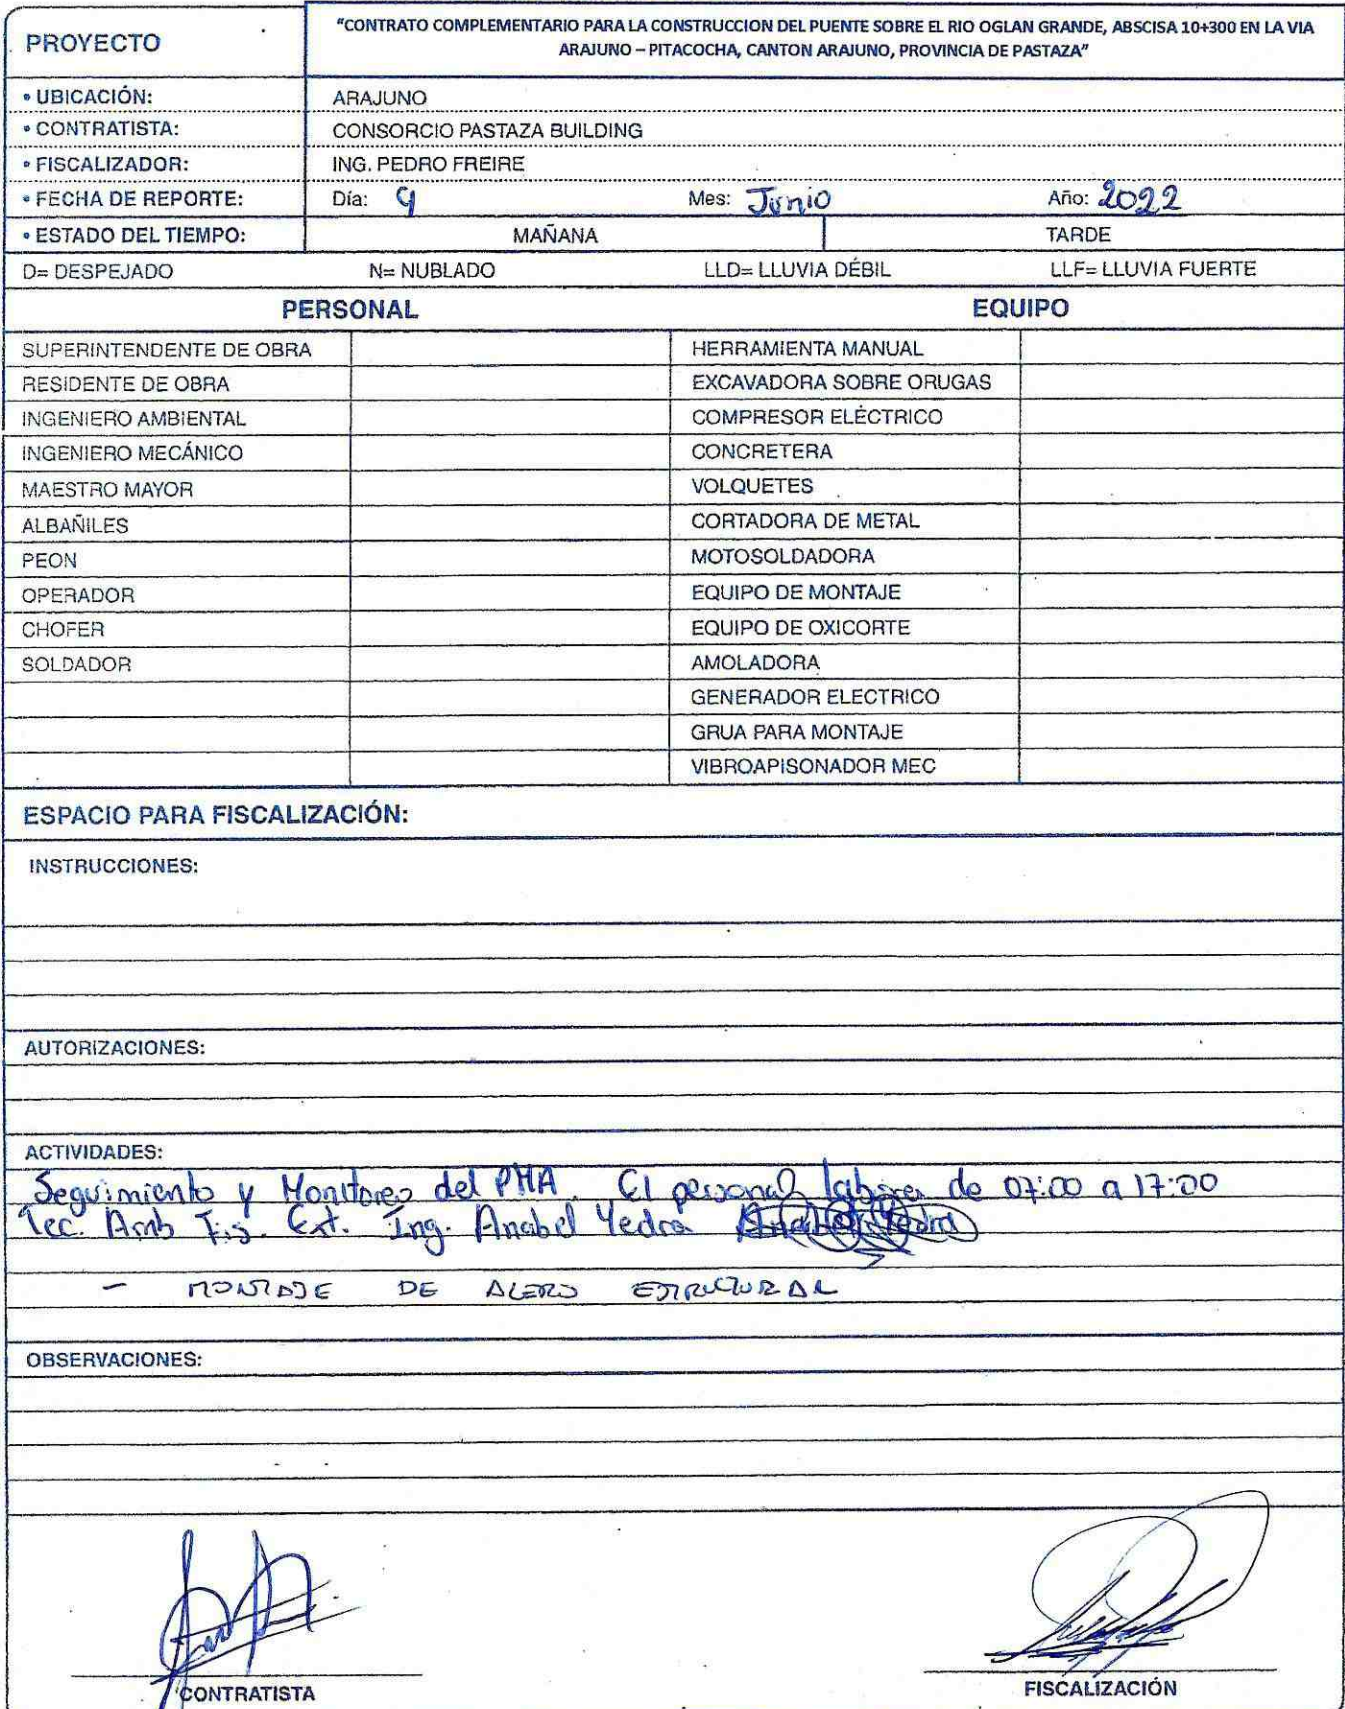 PROYECTO
"CONTRATO COMPLEMENTARIO PARA LA CONSTRUCCION DEL PUENTE SOBRE EL RIO OGLAN GRANDE, ABSCISA 10+300 EN LA VIA
ARAJUNO – PITACOCHA, CANTON ARAJUNO, PROVINCIA DE PASTAZA"
• UBICACIÓN: ARAJUNO
• CONTRATISTA: CONSORCIO PASTAZA BUILDING
• FISCALIZADOR: ING. PEDRO FREIRE
• FECHA DE REPORTE: Día: 9 Mes: Junio Año: 2022
• ESTADO DEL TIEMPO: MAÑANA TARDE
D= DESPEJADO N= NUBLADO LLD= LLUVIA DÉBIL LLF= LLUVIA FUERTE
PERSONAL EQUIPO
SUPERINTENDENTE DE OBRA HERRAMIENTA MANUAL
RESIDENTE DE OBRA EXCAVADORA SOBRE ORUGAS
INGENIERO AMBIENTAL COMPRESOR ELÉCTRICO
INGENIERO MECÁNICO CONCRETERA
MAESTRO MAYOR VOLQUETES
ALBAÑILES CORTADORA DE METAL
PEON MOTOSOLDADORA
OPERADOR EQUIPO DE MONTAJE
CHOFER EQUIPO DE OXICORTE
SOLDADOR AMOLADORA
GENERADOR ELECTRICO
GRUA PARA MONTAJE
VIBROAPISONADOR MEC
ESPACIO PARA FISCALIZACIÓN:
INSTRUCCIONES:
AUTORIZACIONES:
ACTIVIDADES:
Seguimiento y Monitoreo del PMA. El personal labora de 07:00 a 17:00
Tec. Amb Fis. Ext. Ing. Anabel Yedra
- MONTAJE DE ALERO ESTRUCTURAL
OBSERVACIONES:
CONTRATISTA FISCALIZACIÓN